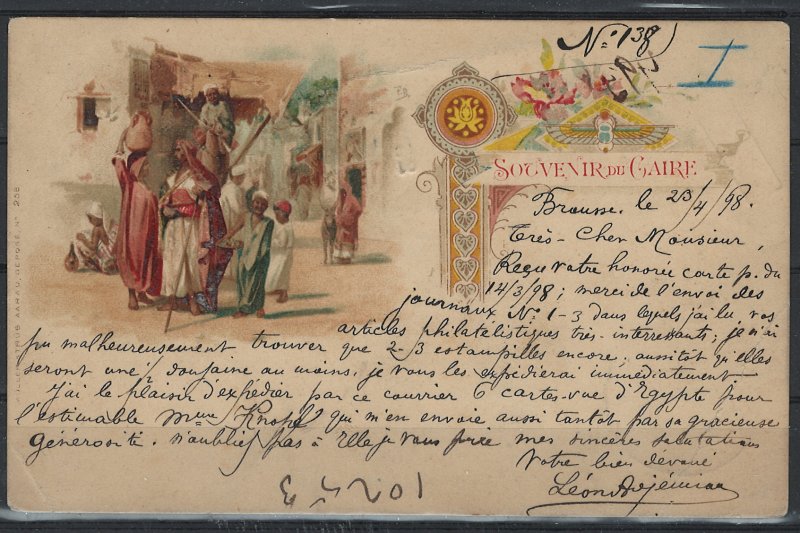 N° 138
I
SOUVENIR DU CAIRE
Brousse, le 23/4/98.
Très-Cher Monsieur,
Reçu votre honorée carte p. du
14/3/98; merci de l'envoi des
journaux N° 1-3 dans lesquels j'ai lu, vos
articles philatélistiques très-interressants; je n'ai
pu malheureusement trouver que 2-3 estampilles encore; aussitôt qu'elles
seront une douzaine au moins, je vous les expédierai immédiatement
J'ai le plaisir d'expédier par ce courrier 6 cartes-vue d'Egypte pour
l'estimable Mme Knopf qui m'en envoie aussi tantôt par sa gracieuse
générosité. N'oubliez pas à Elle je vous prie mes sincères salutations
Votre bien dévoué
Léon Adjémian
10243
AARAU. DEPOSE. No 258